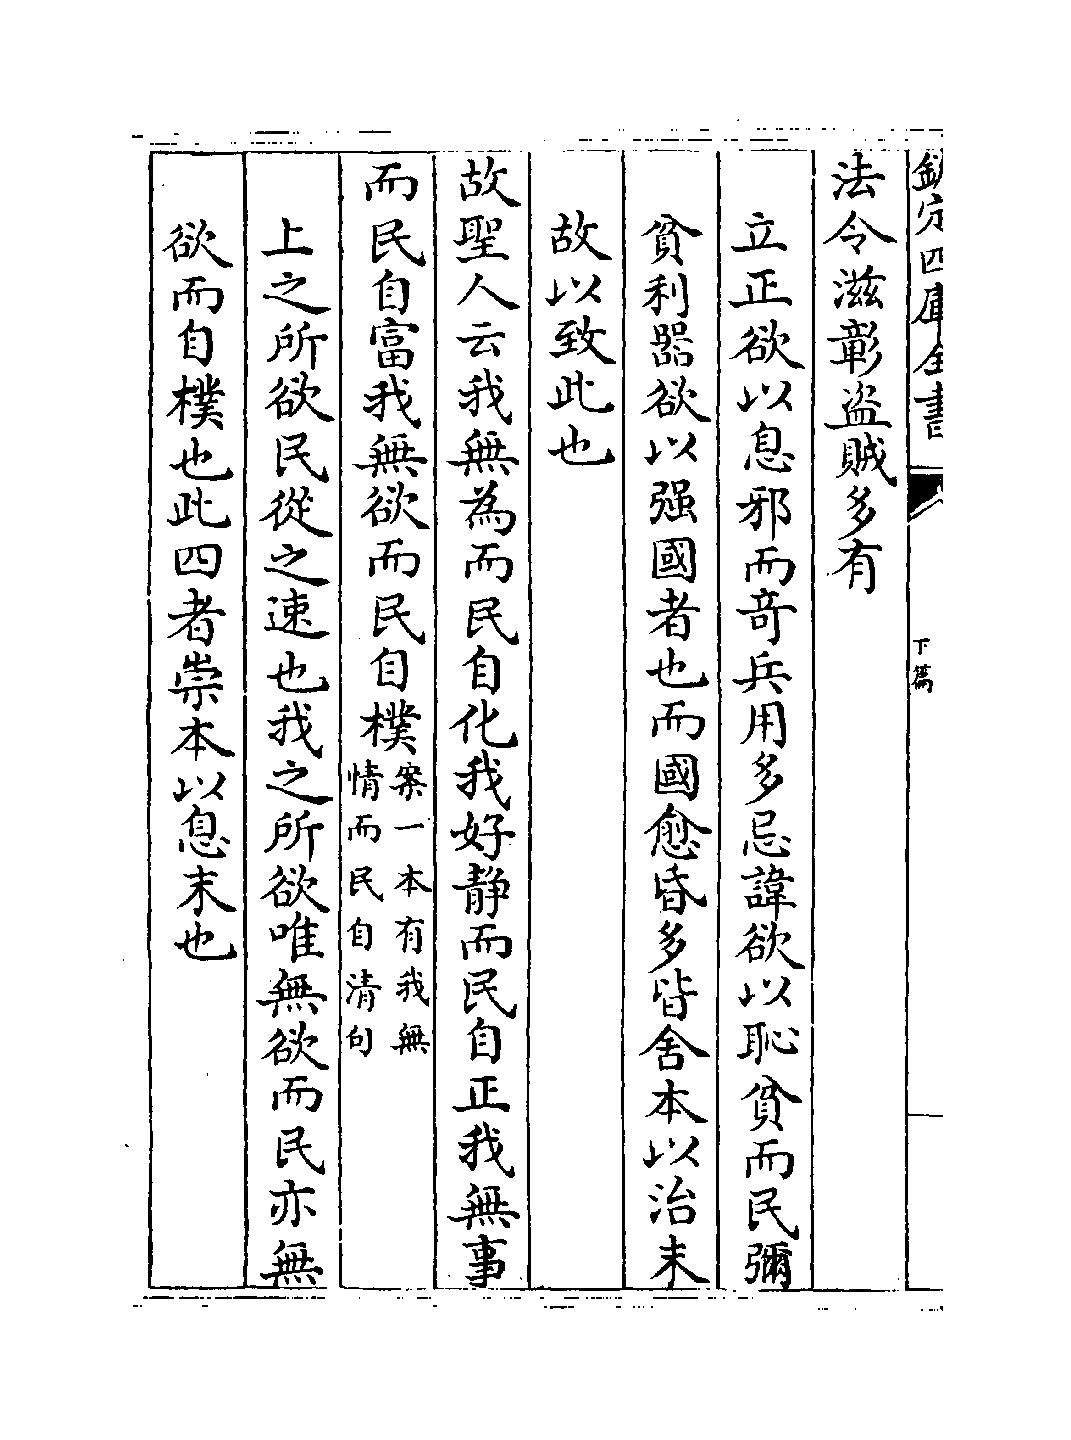 欽定四庫全書
下篇
法令滋彰盗賊多有
立正欲以息邪而竒兵用多忌諱欲以恥貧而民彌
貧利器欲以强國者也而國愈昏多皆舍本以治末
故以致此也
故聖人云我無為而民自化我好静而民自正我無事
而民自富我無欲而民自樸案一本有我無
情而民自清句
上之所欲民從之速也我之所欲唯無欲而民亦無
欲而自樸也此四者崇本以息末也